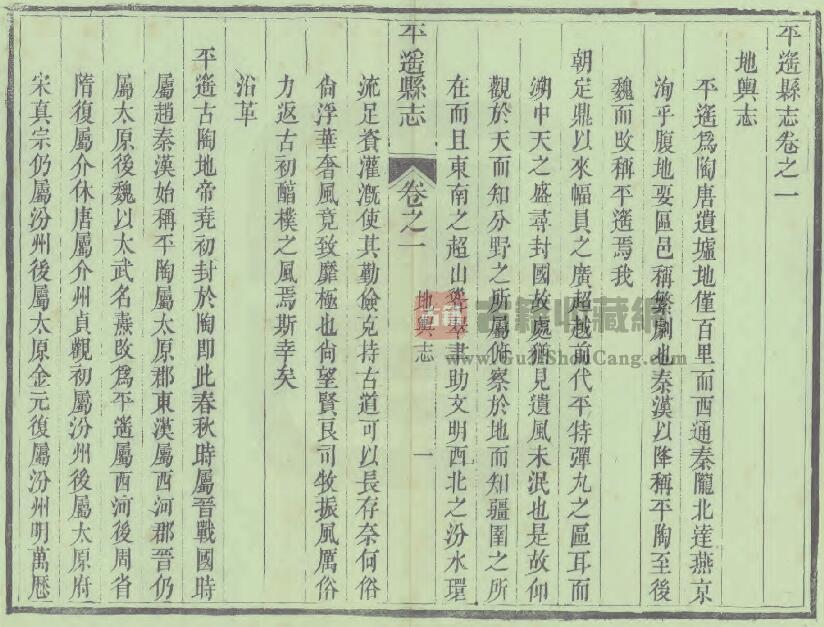 平遙縣志卷之一
地輿志
平遙爲陶唐遺墟地僅百里而西通秦隴北達燕京
洵乎腹地要區邑稱繁劇也秦漢以降稱平陶至後
魏而改稱平遙焉我
朝定鼎以來幅員之廣超越前代平特彈丸之區耳而
溯中天之盛尋封國故處猶見遺風未泯也是故仰
觀於天而知分野之所屬俯察於地而知疆圉之所
在而且東南之超山聳翠書助文明西北之汾水環
平遙縣志
卷之一
地輿志
一
流足資灌漑使其勤儉克持古道可以長存奈何俗
尙浮華奢風竟致靡極也尙望賢良司牧振風厲俗
力返古初醕樸之風焉斯幸矣
沿革
平遙古陶地帝堯初封於陶即此春秋時屬晉戰國時
屬趙秦漢始稱平陶屬太原郡東漢屬西河郡晉仍
屬太原後魏以太武名燾改爲平遙屬西河後周省
隋復屬介休唐屬介州貞觀初屬汾州後屬太原府
宋真宗仍屬汾州後屬太原金元復屬汾州明萬歷
古籍收藏網
www.GuJiShouCang.com